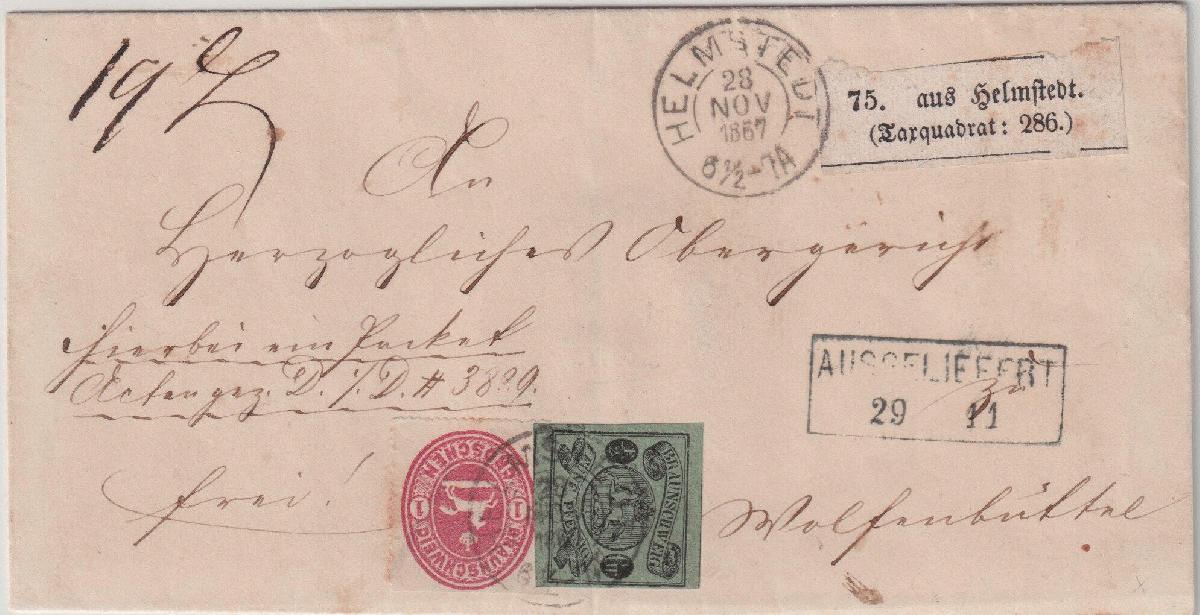 HELMSTEDT
28
NOV
1867
6½-7A
75. aus Helmstedt.
(Taxquadrat: 286.)
An
Herzogliches Obergericht
hierbei ein Packet
Acten gez. D. /. D. # 3829.
AUSGELIEFERT
29 11
zu
frei!
Wolfenbüttel
1 GROSCHEN 1
BRAUNSCHWEIG
BRAUNSCHWEIG